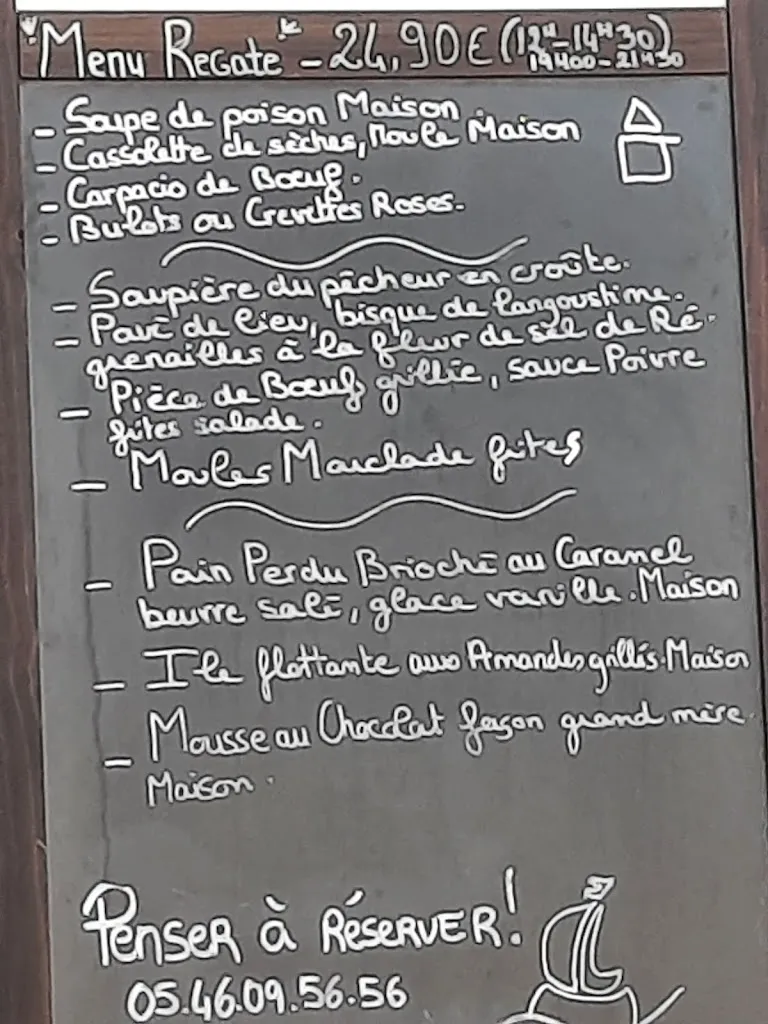 Menu Regate - 24,90€ (12H-14H30)
19H00-21H30
- Soupe de poison Maison.
- Cassolette de sèches, Moule Maison
- Carpacio de Bœuf.
- Bulots ou Crevettes Roses.
- Soupière du pêcheur en croûte.
- Pavé de lieu, bisque de langoustine.
grenailles à la fleur de sel de Ré.
- Pièce de Bœuf grillée, sauce Poivre
frites salade.
- Moules Mouclade frites
- Pain Perdu Brioché au Caramel
beurre salé, glace vanille. Maison
- Ile flottante aux Amandes grillés. Maison
- Mousse au Chocolat façon grand mère.
Maison.
Penser à Réserver!
05.46.09.56.56